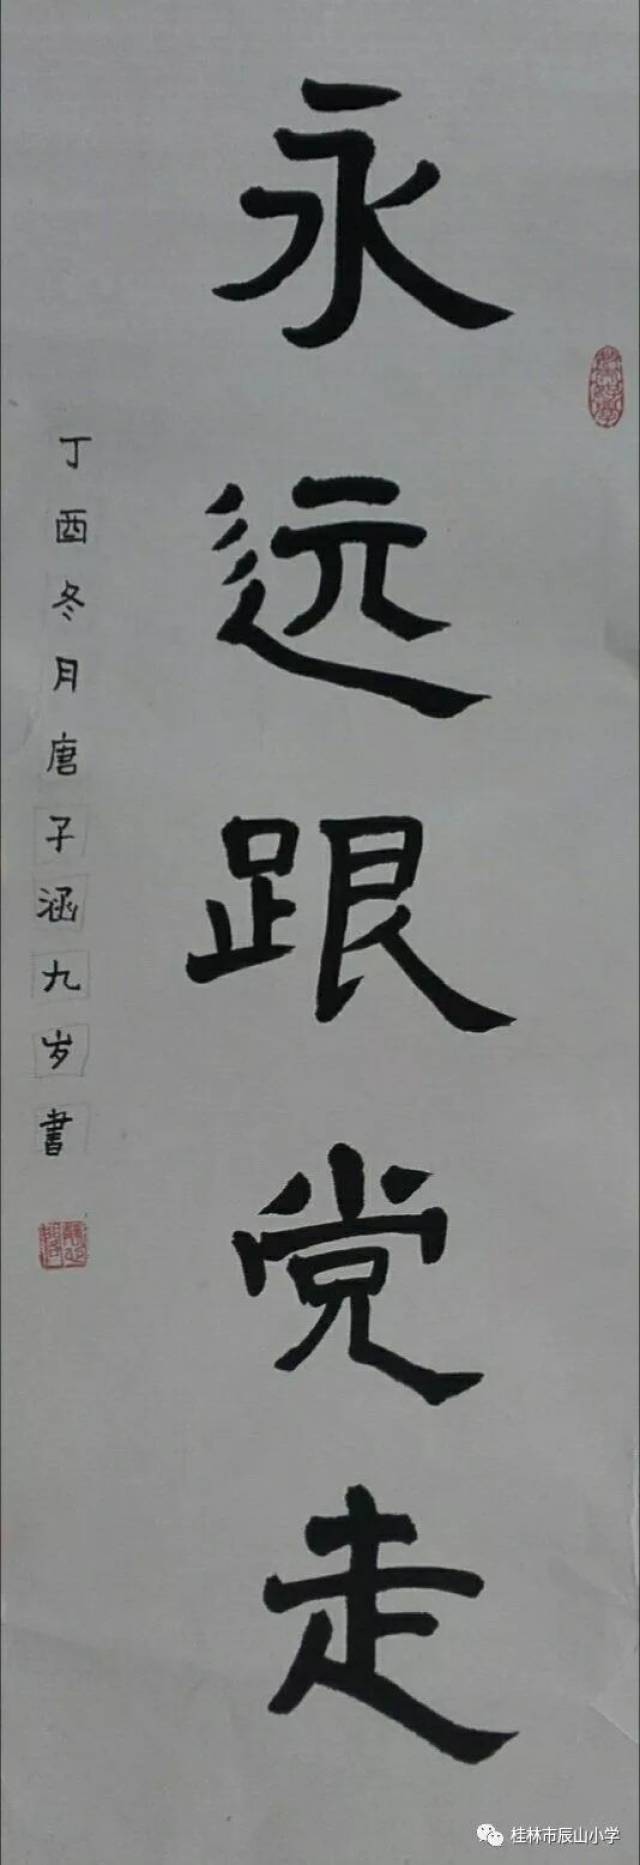 永远跟党走
丁酉冬月唐子涵九岁書
桂林市辰山小学